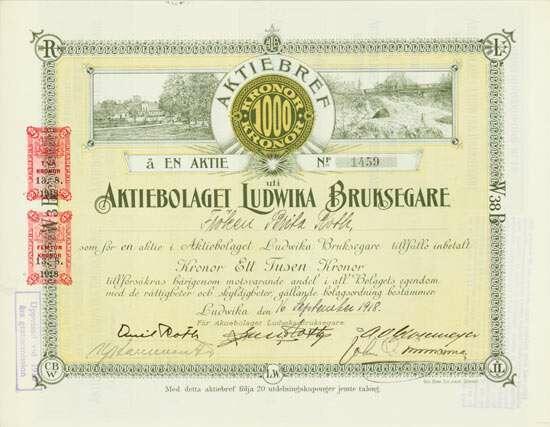 R
L
AKTIEBREF
KRONOR
1000
KRONOR
å EN AKTIE No 1459
uti
AKTIEBOLAGET LUDWIKA BRUKSEGARE
Fröken Brita Roth,
som för en aktie i Aktiebolaget Ludwika Bruksegare tillfullo inbetalt
Kronor Ett Tusen Kronor
tillförsäkras härigenom motsvarande andel i all Bolagets egendom
med de rättigheter och skyldigheter, gällande bolagsordning bestämmer.
Ludwika den 16 September 1918.
För Aktiebolaget Ludwika Bruksegare.
Emil Roth
KRONOR
13. 8.
1918
FEMTON
KRONOR
1918
W38R
CB
W
LW
H
Med detta aktiebref följa 20 utdelningskuponger jemte talong.